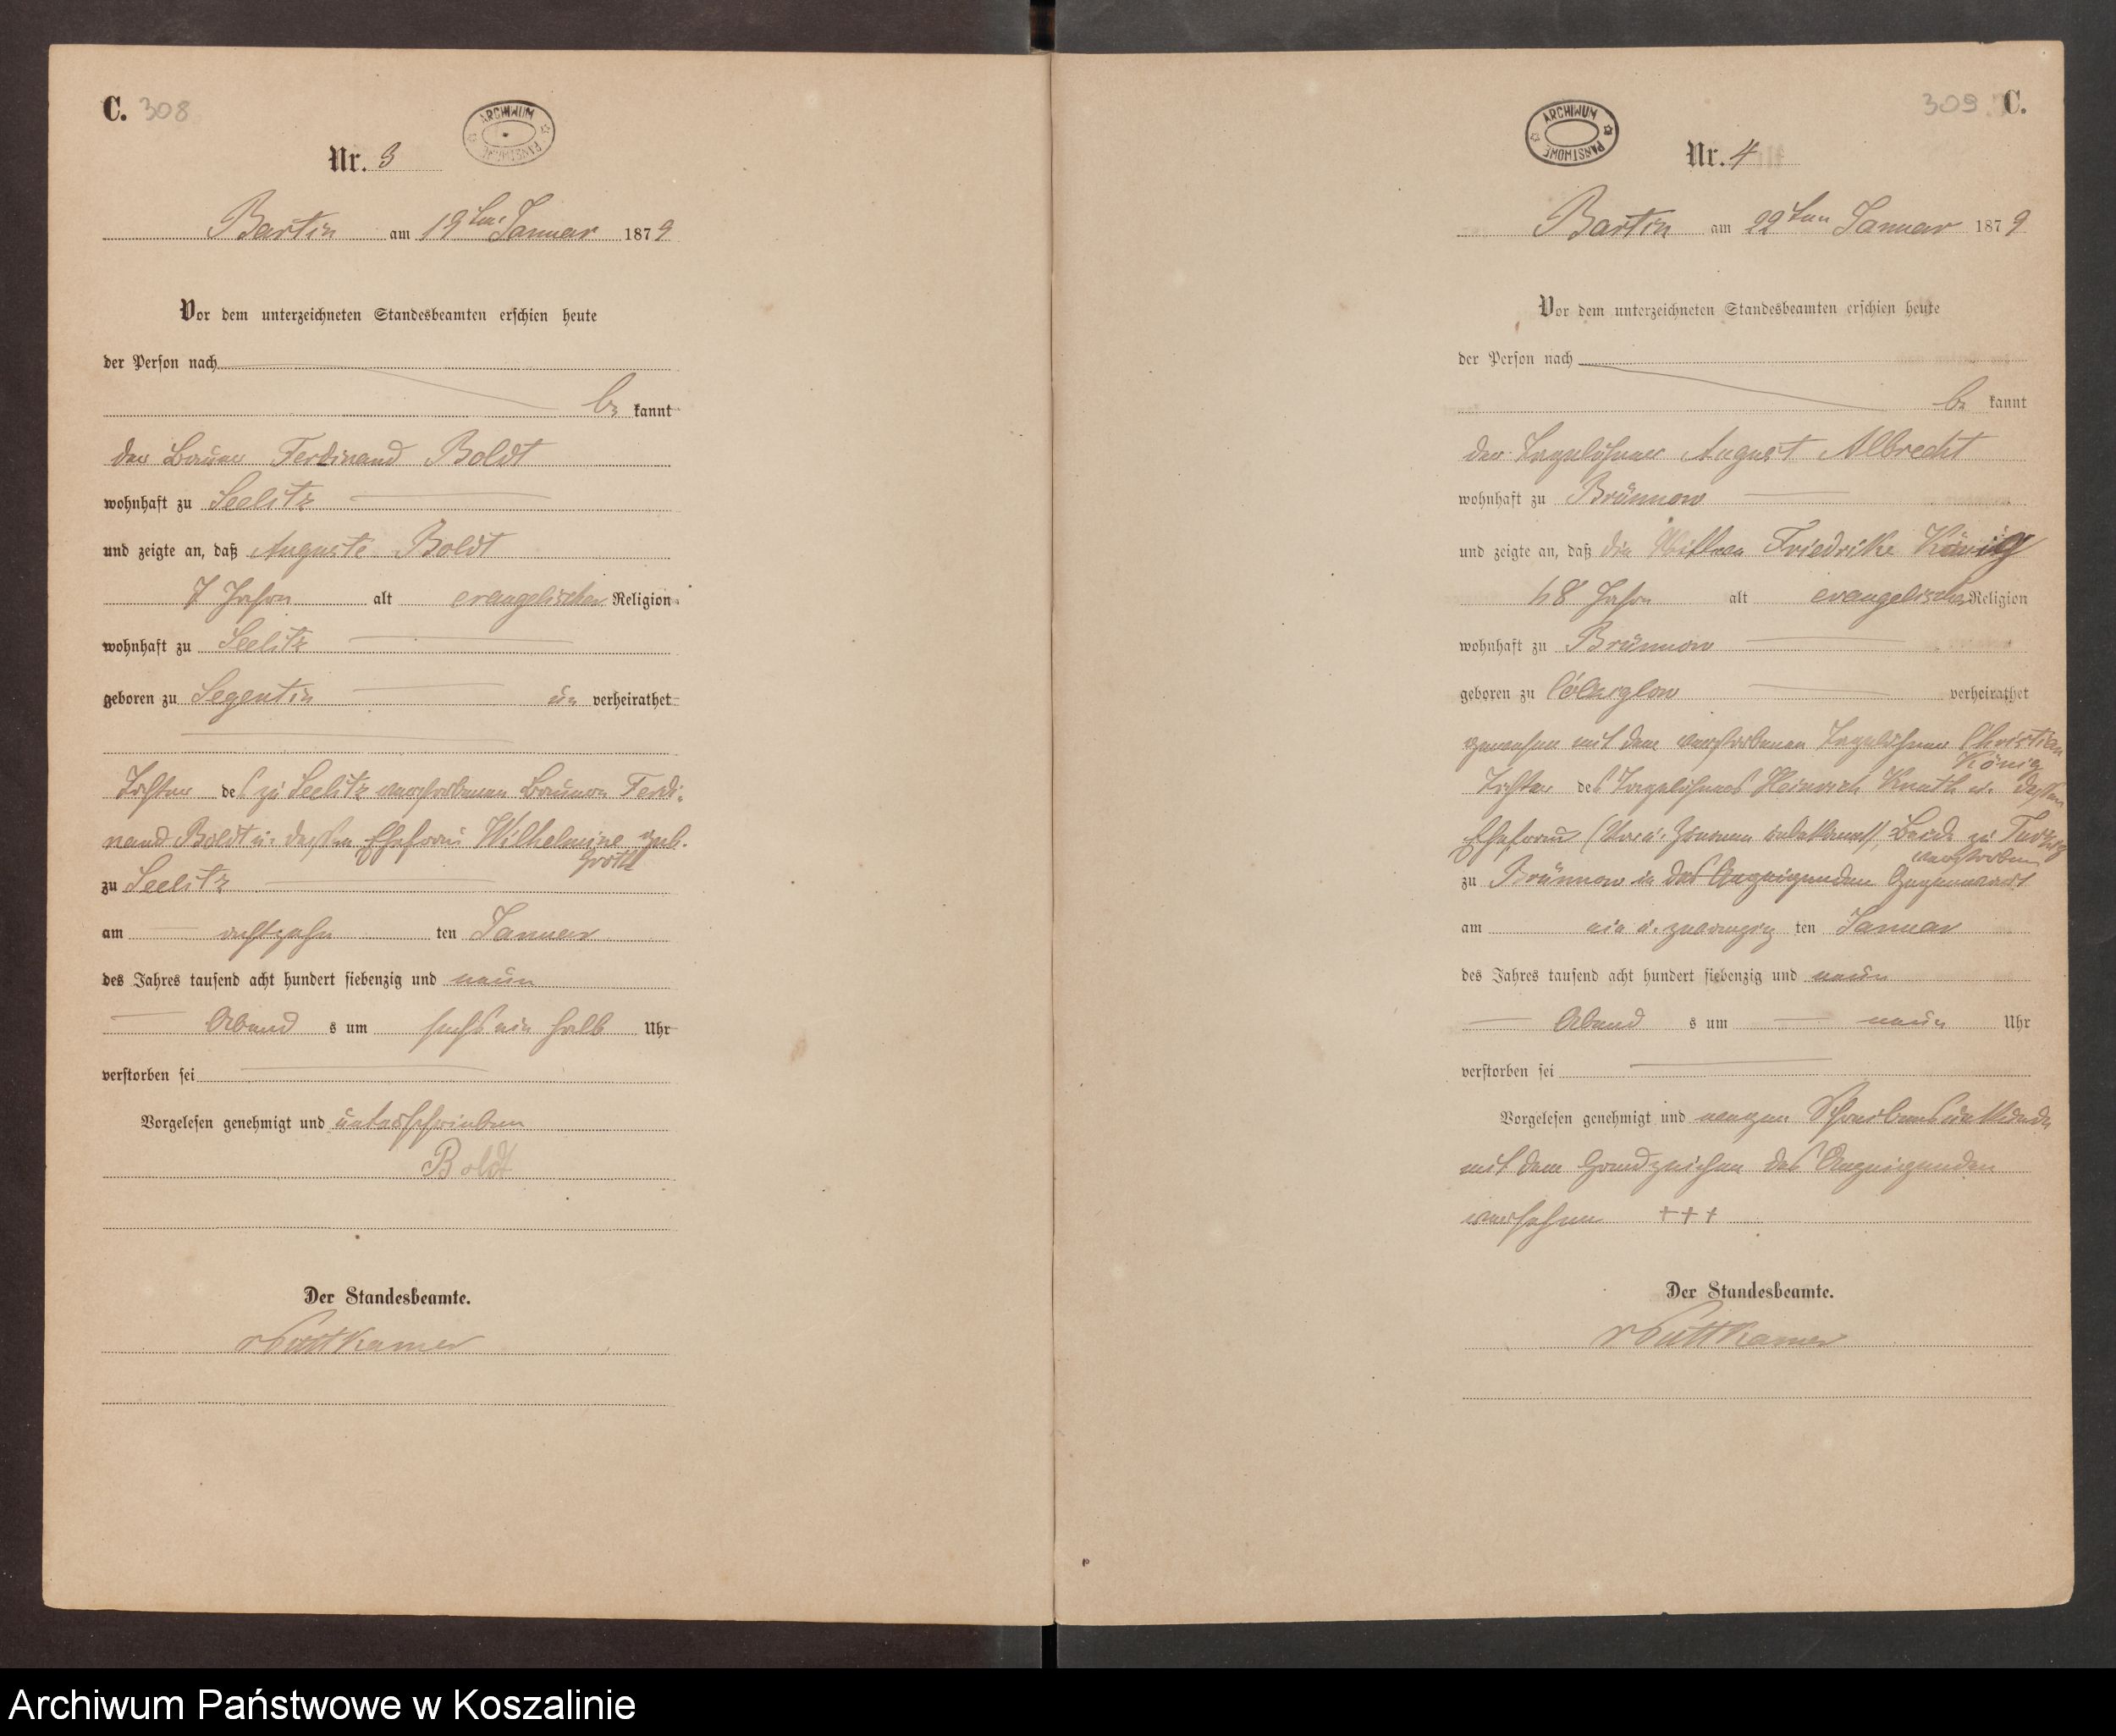 C. 308
ARCHIWUM PAŃSTWOWE
Nr. 3
Bartin am 19ten Januar 1879
Vor dem unterzeichneten Standesbeamten erschien heute
der Person nach
be kannt
der Bauer Ferdinand Boldt
wohnhaft zu Seelitz
und zeigte an, daß Auguste Boldt
7 Jahre alt evangelischer Religion
wohnhaft zu Seelitz
geboren zu Segentin un verheirathet
Tochter des zu Seelitz verstorbenen Bauern Ferdi-
nand Boldt u. dessen Ehefrau Wilhelmine geb.
Groth
zu Seelitz
am achtzehn ten Januar
des Jahres tausend acht hundert siebenzig und neun
Abend s um sechs ein halb Uhr
verstorben sei
Vorgelesen genehmigt und unterschrieben
Boldt
Der Standesbeamte.
v Puttkamer
309. C.
ARCHIWUM PAŃSTWOWE
Nr. 4
Bartin am 22ten Januar 1879
Vor dem unterzeichneten Standesbeamten erschien heute
der Person nach
be kannt
der Tagelöhner August Albrecht
wohnhaft zu Brünnow
und zeigte an, daß die Wittwe Friedrike König
48 Jahre alt evangelischer Religion
wohnhaft zu Brünnow
geboren zu verheirathet
gewesen mit dem verstorbenen Tagelöhner Christian
König
Tochter des Tagelöhners Heinrich Knuth u. dessen
Ehefrau (Vor u. Zunamen unbekannt), Beide zu
verstorben
zu Brünnow in des Anzeigenden Gegenwart
am ein u. zwanzig ten Januar
des Jahres tausend acht hundert siebenzig und neun
Abend s um neun Uhr
verstorben sei
Vorgelesen genehmigt und wegen Schreibensunkunde
mit dem Handzeichen des Anzeigenden
versehen +++
Der Standesbeamte.
v Puttkamer
Archiwum Państwowe w Koszalinie